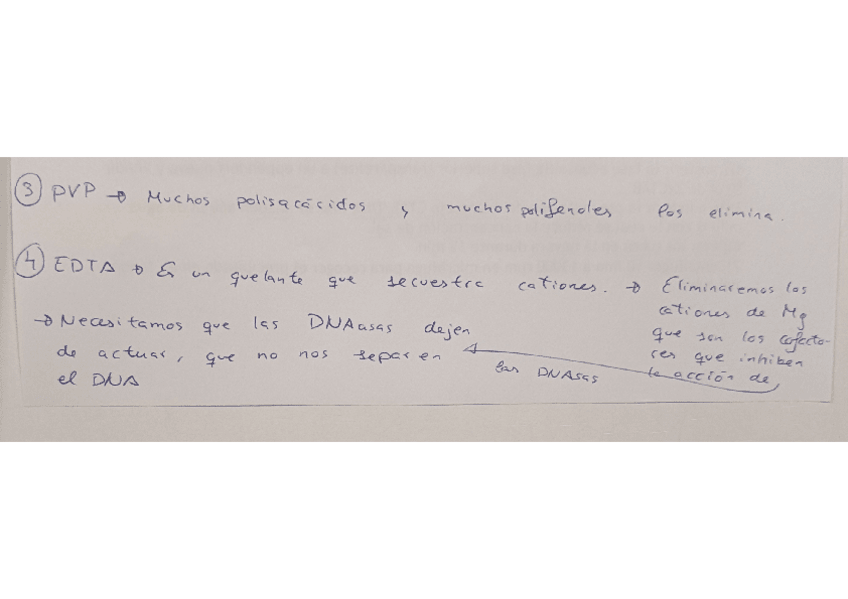 ③ PVP → Muchos polisacácidos y muchos polifenoles los elimina.
④ EDTA → Es un quelante que secuestra cationes. → Eliminaremos los
cationes de Mg
que son los cofacto-
res que inhiben
la acción de,
las DNAsas
→ Necesitamos que las DNAasas dejen
de actuar, que no nos separen
el DNA